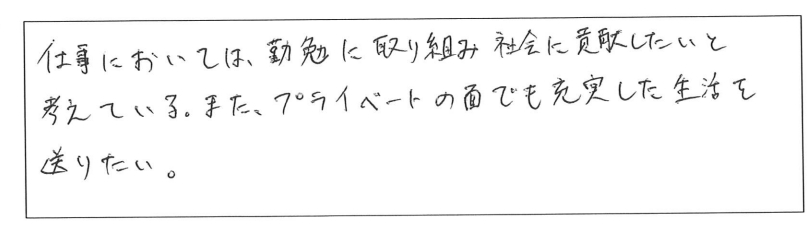 仕事においては、勤勉に取り組み社会に貢献したいと
考えている。また、プライベートの面でも充実した生活を
送りたい。